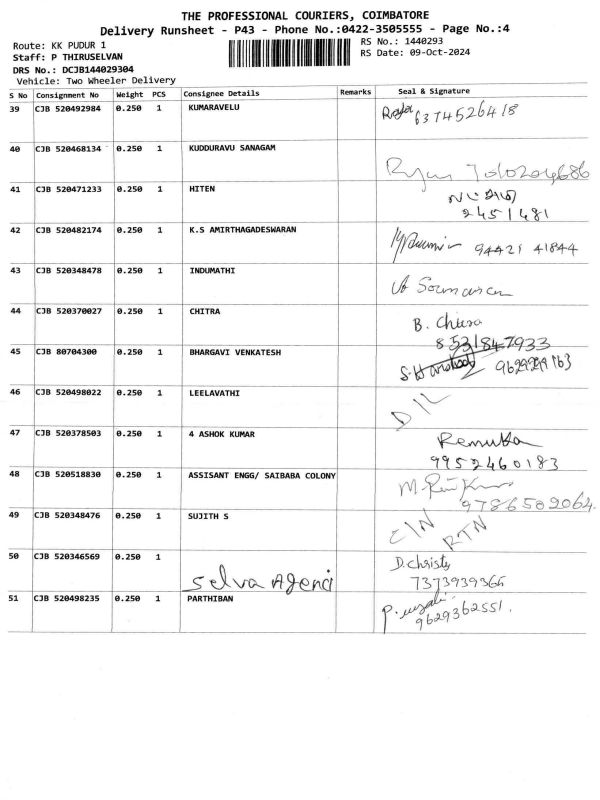 THE PROFESSIONAL COURIERS, COIMBATORE
Delivery Runsheet - P43 - Phone No.:0422-3505555 - Page No.:4
Route: KK PUDUR 1
RS No.: 1440293
Staff: P THIRUSELVAN
RS Date: 09-Oct-2024
DRS No.: DCJB144029304
Vehicle: Two Wheeler Delivery
S No Consignment No Weight PCS Consignee Details Remarks Seal & Signature
39 CJB 520492984 0.250 1 KUMARAVELU
6374526418
40 CJB 520468134 0.250 1 KUDDURAVU SANAGAM
41 CJB 520471233 0.250 1 HITEN
2451481
42 CJB 520482174 0.250 1 K.S AMIRTHAGADESWARAN
94421 41844
43 CJB 520348478 0.250 1 INDUMATHI
44 CJB 520370027 0.250 1 CHITRA
B.
8531847933
45 CJB 80704300 0.250 1 BHARGAVI VENKATESH
46 CJB 520498022 0.250 1 LEELAVATHI
D/L
47 CJB 520378503 0.250 1 4 ASHOK KUMAR
Renuka
9952460183
48 CJB 520518830 0.250 1 ASSISANT ENGG/ SAIBABA COLONY
9786502064
49 CJB 520348476 0.250 1 SUJITH S
RTN
50 CJB 520346569 0.250 1
D. Christy
Selva Agenci
7373939366
51 CJB 520498235 0.250 1 PARTHIBAN
9629362551